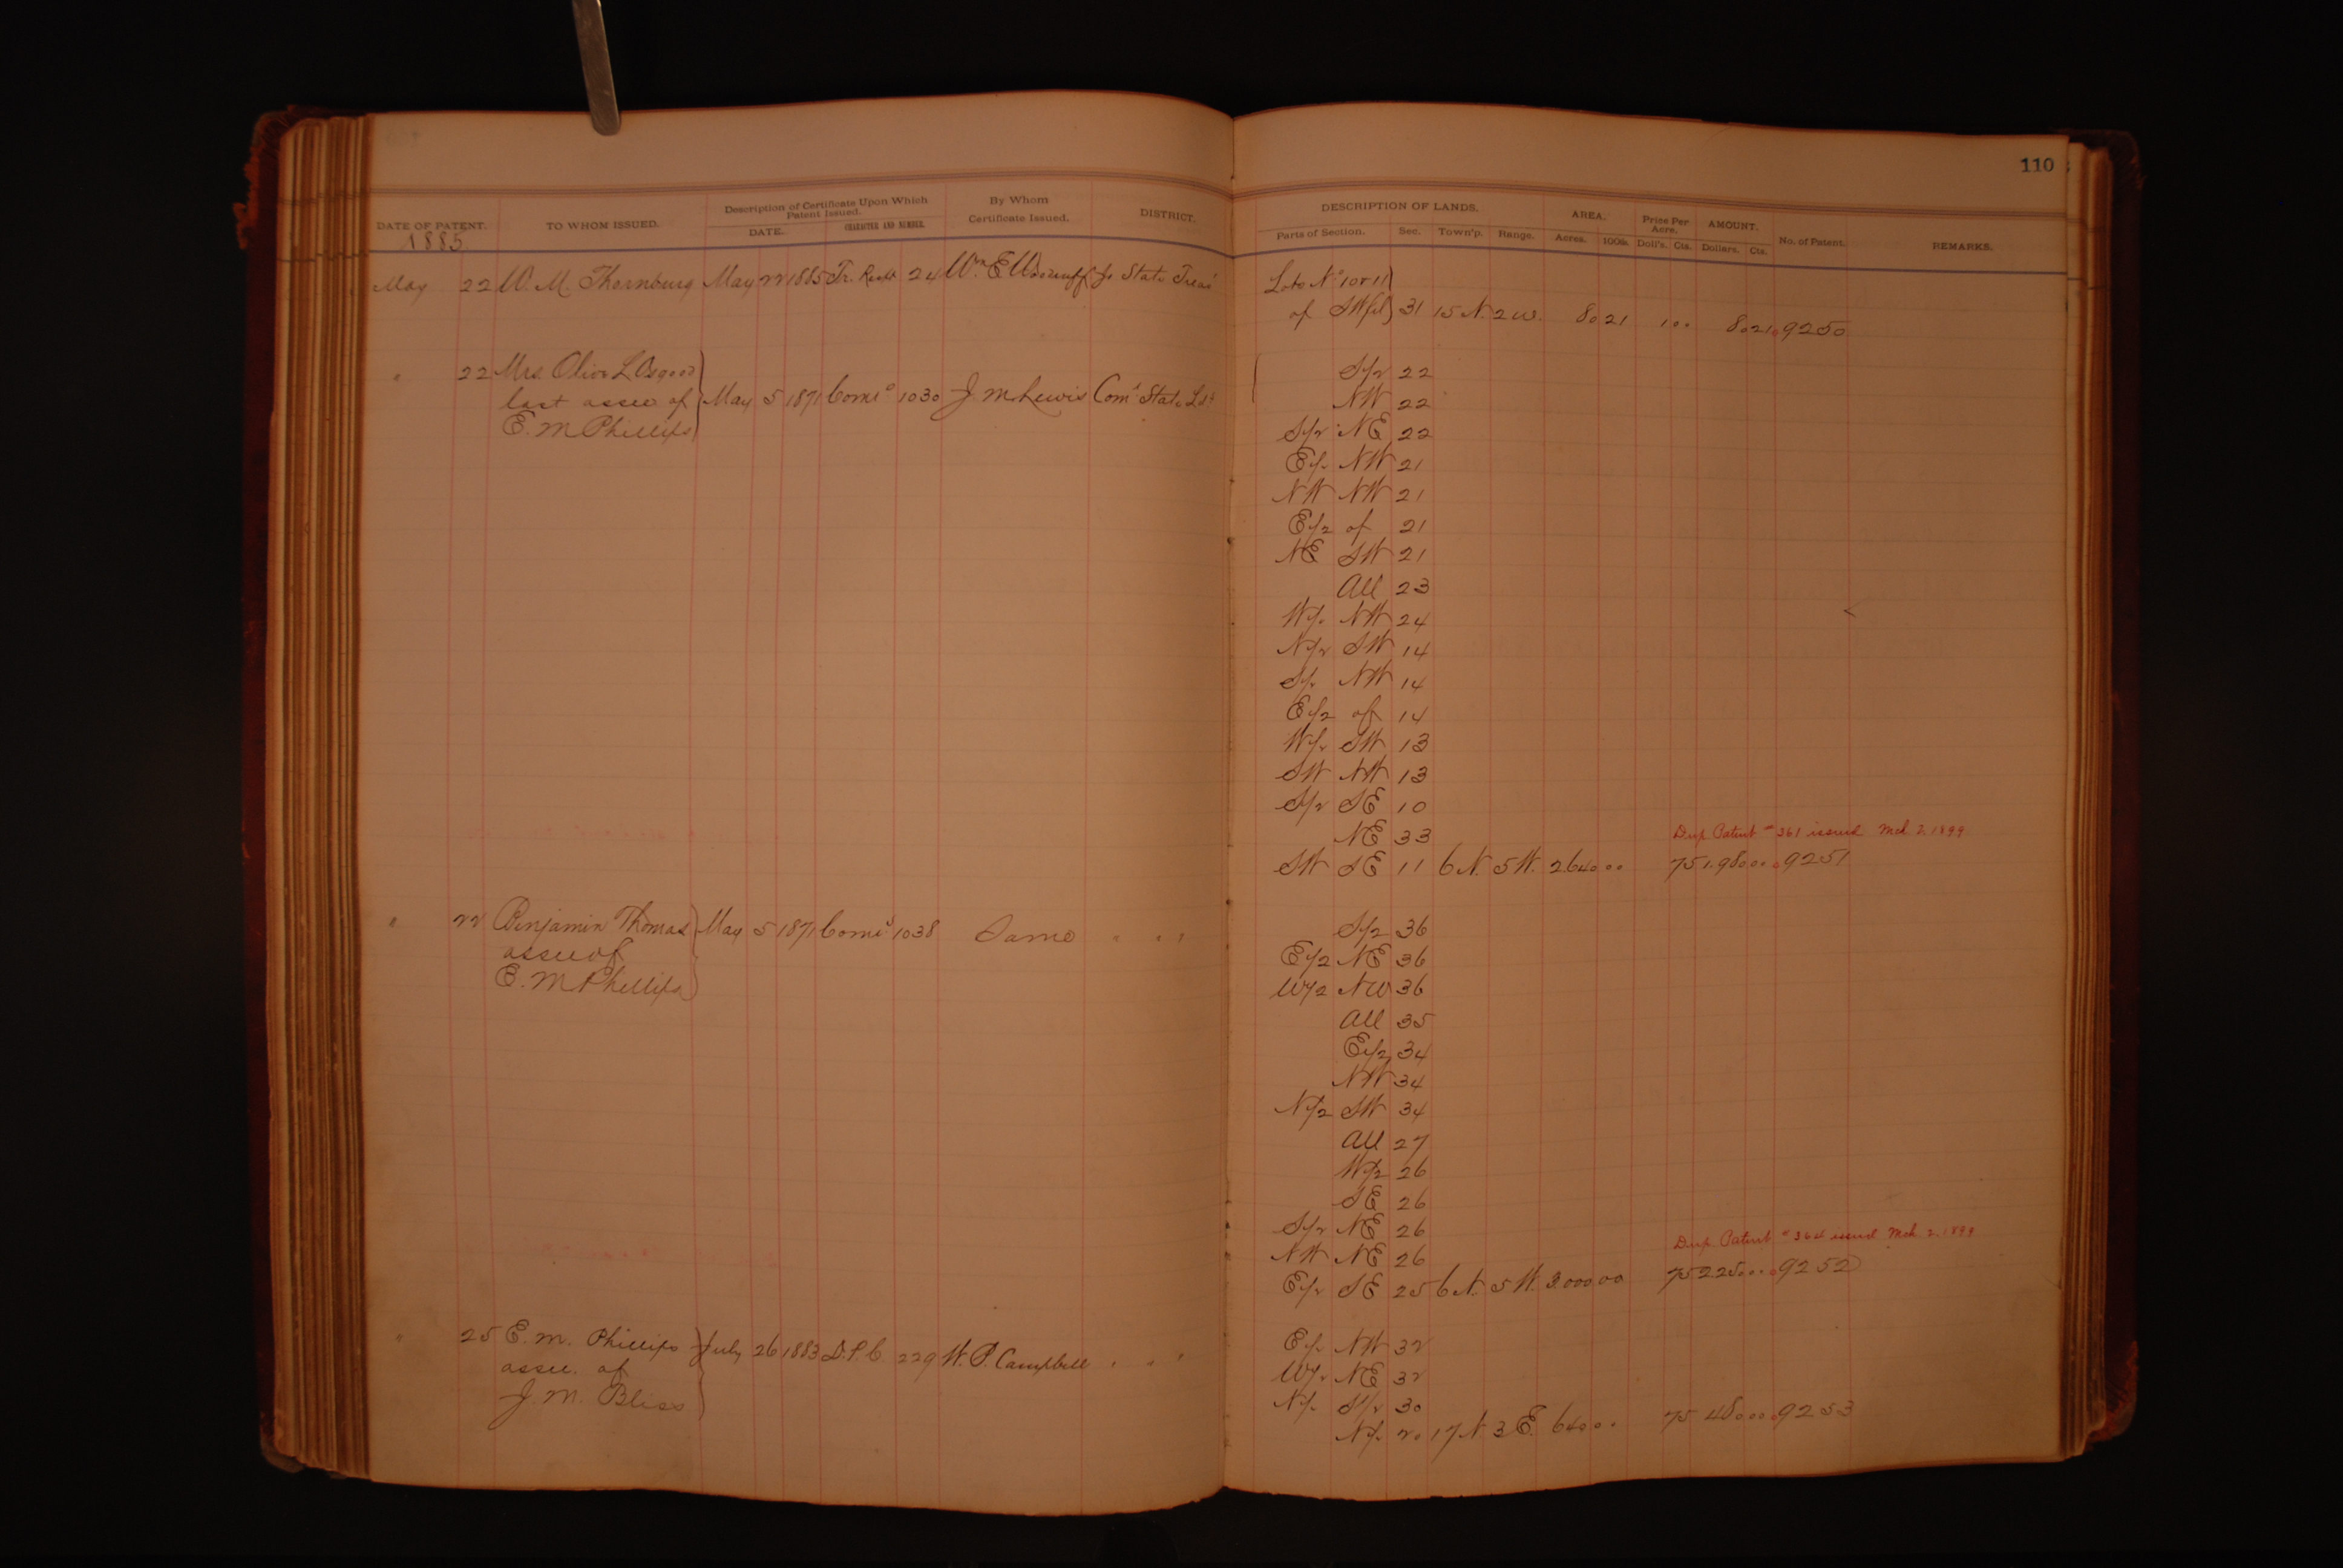 110
DATE OF PATENT. TO WHOM ISSUED. Description of Certificate Upon Which Patent Issued. DATE. CHARACTER AND NUMBER. By Whom Certificate Issued. DISTRICT. DESCRIPTION OF LANDS. Parts of Section. Sec. Town'p. Range. AREA. Acres. 100ths. Price Per Acre. Doll's. Cts. AMOUNT. Dollars. Cts. No. of Patent. REMARKS.
1885
May 22 W. M. Thornburg May 22 1885 Tr. Rect 24 Wm E Woodruff Jr State Treas Lots No 10 & 11
of SW frl 31 15 N. 2 W. 80 21 1 00 80 21 9250
" 22 Mrs. Olive L Osgood S/2 22
last assee of May 5 1871 Coms 1030 J. M Lewis Com State Lds NW 22
E. M Phillips S/2 NE 22
E/2 NW 21
NW NW 21
E/2 of 21
NE SW 21
All 23
W/2 NW 24
N/2 SW 14
S/2 NW 14
E/2 of 14
W/2 SW 13
SW NW 13
S/2 SE 10
NE 33 Dup. Patent # 361 issued Mch 2, 1899
SW SE 11 6 N. 5 W. 2640 00 75 1980 00 9251
" 22 Benjamin Thomas May 5 1871 Coms 1038 Same " " " S/2 36
assee of E/2 NE 36
E. M Phillips W/2 NW 36
All 35
E/2 34
NW 34
N/2 SW 34
All 27
W/2 26
SE 26
S/2 NE 26
NW NE 26 Dup. Patent # 364 issued Mch 2, 1899
E/2 SE 25 6 N. 5 W. 3000 00 75 2250 00 9252
" 25 E. M. Phillips July 26 1883 D. P. C. 229 W. P. Campbell " " " E/2 NW 32
assee. of W/2 NE 32
J. M. Bliss N/2 S/2 30
N/2 20 17 N 3 E. 640 00 75 480 00 9253